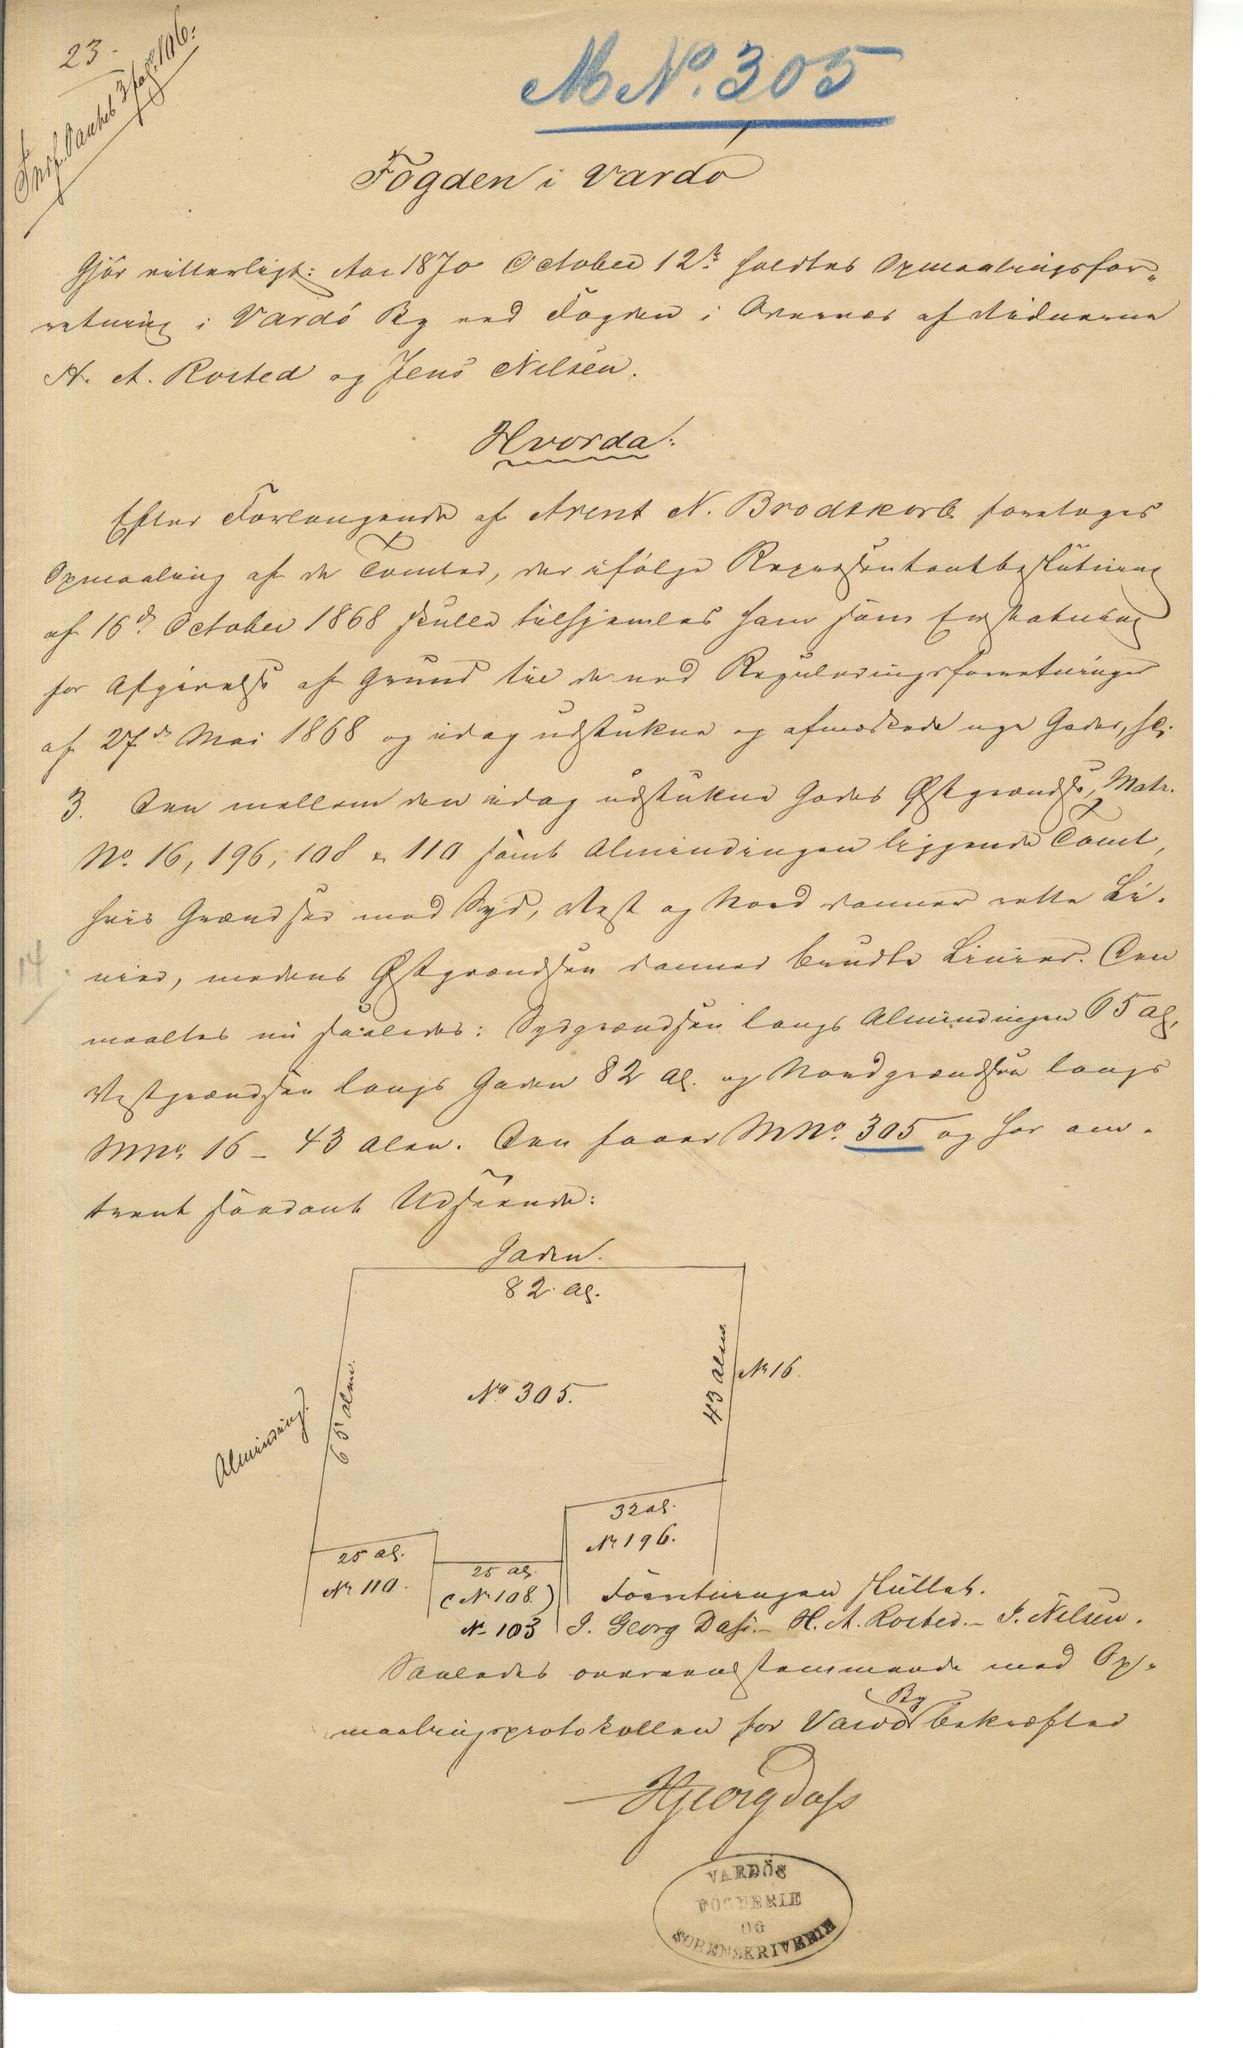 23.
M No. 305
Fogden i Vardö
Gjör vitterligt: Aar 1870 October 12te holdtes Opmaalingsfor„
retning i Vardö By ved Fogden i Overvær af Vidnerne
H. A. Rosted og Jens Nilsen.
Hvorda:
Efter Forlangende af Arent N. Brodtkorb foretoges
Opmaaling af de Tomter, der ifølge Repræsentantbeslutning
af 16de October 1868 skulle tilhjemles ham som Erstatning
for Afgivelse af Grund til de ved Reguleringsforretninger
af 27de Mai 1868 og idag udstukne og afmærkede nye Gader,
3. Den mellem den idag udstukne Gades Østgrændse, Matr.
No. 16, 196, 108 & 110 samt Almindingen liggende Tomt,
hvis Grændser mod Syd, Vest og Nord danner rette Li-
nier, medens Østgrændsen danner brudte Linier. Den
14
maaltes nu saaledes: Sydgrændsen langs Almindingen 65 al,
Vestgrændsen langs Gaden 82 al. og Nordgrændsen langs
MNo. 16 - 43 Alen. Den faaer MNo. 305 og har om-
trent saadant Udseende:
Gaden.
82 al.
Alminding.
65 alen.
No 305.
43 alen.
No 16.
32 al.
No 196.
25 al.
No 110.
25 al.
(No 108.)
No 103
Forretningen sluttet.
J. Georg Dass.- H. A. Rosted.- J. Nilsen.
Saaledes overeensstemmende med Op-
maalingsprotokollen for Vardö By bekræfter
HGeorg Dass
VARDÖS
FOGDERIE
OG
SORENSKRIVERIE